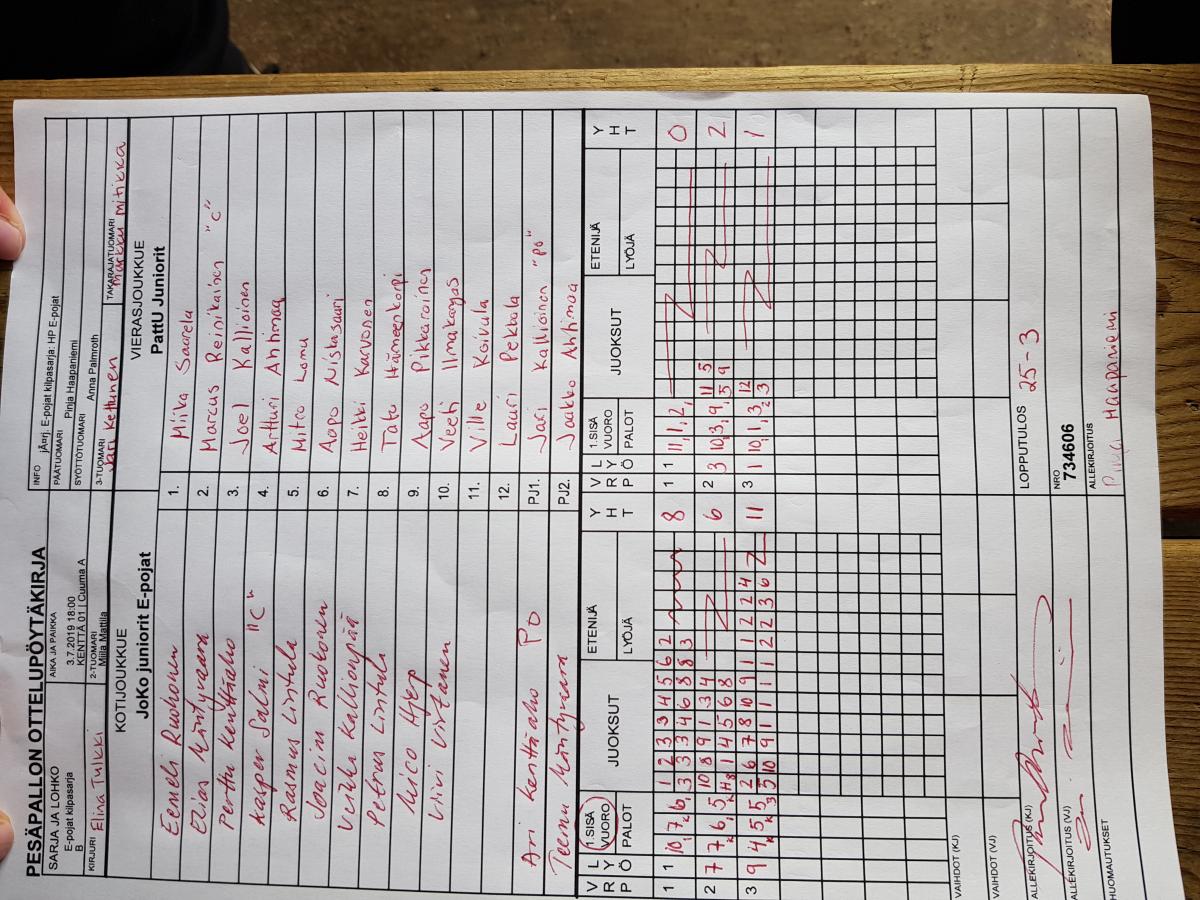 PESÄPALLON OTTELUPÖYTÄKIRJA
SARJA JA LOHKO
E-pojat kilpasarja
B
AIKA JA PAIKKA
3.7.2019 18:00
KENTTÄ 01 | Cuuma A
INFO jÄrrj. E-pojat kilpasarja: HP E-pojat
PÄÄTUOMARI Pinja Haapaniemi
SYÖTTÖTUOMARI Anna Palmroth
KIRJURI Elina Tulkki
2-TUOMARI Milla Mattila
3-TUOMARI Jari Kettunen
TAKARAJATUOMARI Markku Mitikka
KOTIJOUKKUE
JoKo juniorit E-pojat
VIERASJOUKKUE
PattU Juniorit
Eemeli Ruohonen 1. Miika Saarela
Elias Mäntyvaara 2. Marcus Reinikainen "C"
Perttu Kenttäaho 3. Joel Kallioinen
Kasper Salmi "C" 4. Artturi Ahtimaa
Rasmus Lintula 5. Mitro Lomu
Joacim Ruokonen 6. Aapo Niskasaari
Veikka Kallionpää 7. Heikki Karvonen
Petrus Lintula 8. Tatu Hämeenkorpi
Mico Hjerp 9. Aapo Pikkarainen
Viivi Virtanen 10. Veeti Ilmakangas
11. Ville Koivula
12. Lauri Pekkala
Ari Kenttäaho PO PJ1. Jari Kallioinen "po"
Teemu Mäntyvaara PJ2. Jaakko Ahtimaa
VRP LYÖ 1.SISÄ VUORO PALOT JUOKSUT ETENIJÄ LYÖJÄ YHT VRP LYÖ 1.SISÄ VUORO PALOT JUOKSUT ETENIJÄ LYÖJÄ YHT
1 1 10, 7, 6, 1 2 3 3 4 5 6 2 8 1 1 11, 1, 2, 0
3 3 3 4 6 8 8 3
2 7 7, 6, 5, 10 8 9 1 3 4 6 2 3 10, 3, 9, 11 5 2
1 4 5 6 8 5 9
3 9 4, 5, 5, 2 6 7 8 10 9 1 1 2 2 4 11 3 1 10, 1, 3, 12 1
3 10 9 1 1 1 1 2 2 3 6 3
VAIHDOT (KJ)
VAIHDOT (VJ)
ALLEKIRJOITUS (KJ)
LOPPUTULOS 25-3
ALLEKIRJOITUS (VJ)
NRO
734606
HUOMAUTUKSET
ALLEKIRJOITUS
Pinja Haapaniemi